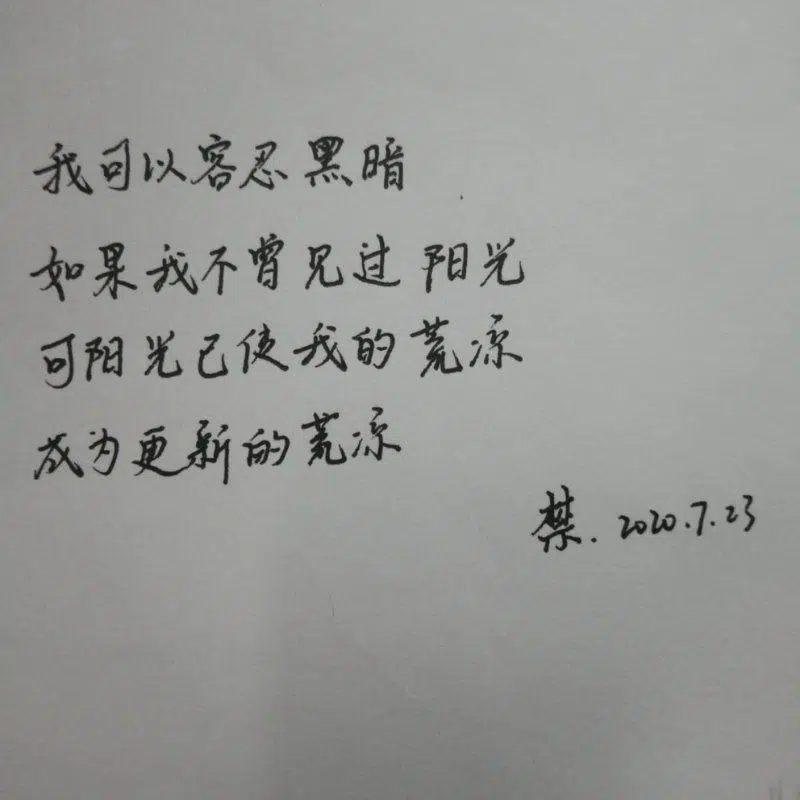 我可以容忍黑暗
如果我不曾见过阳光
可阳光已使我的荒凉
成为更新的荒凉
禁. 2020.7.23